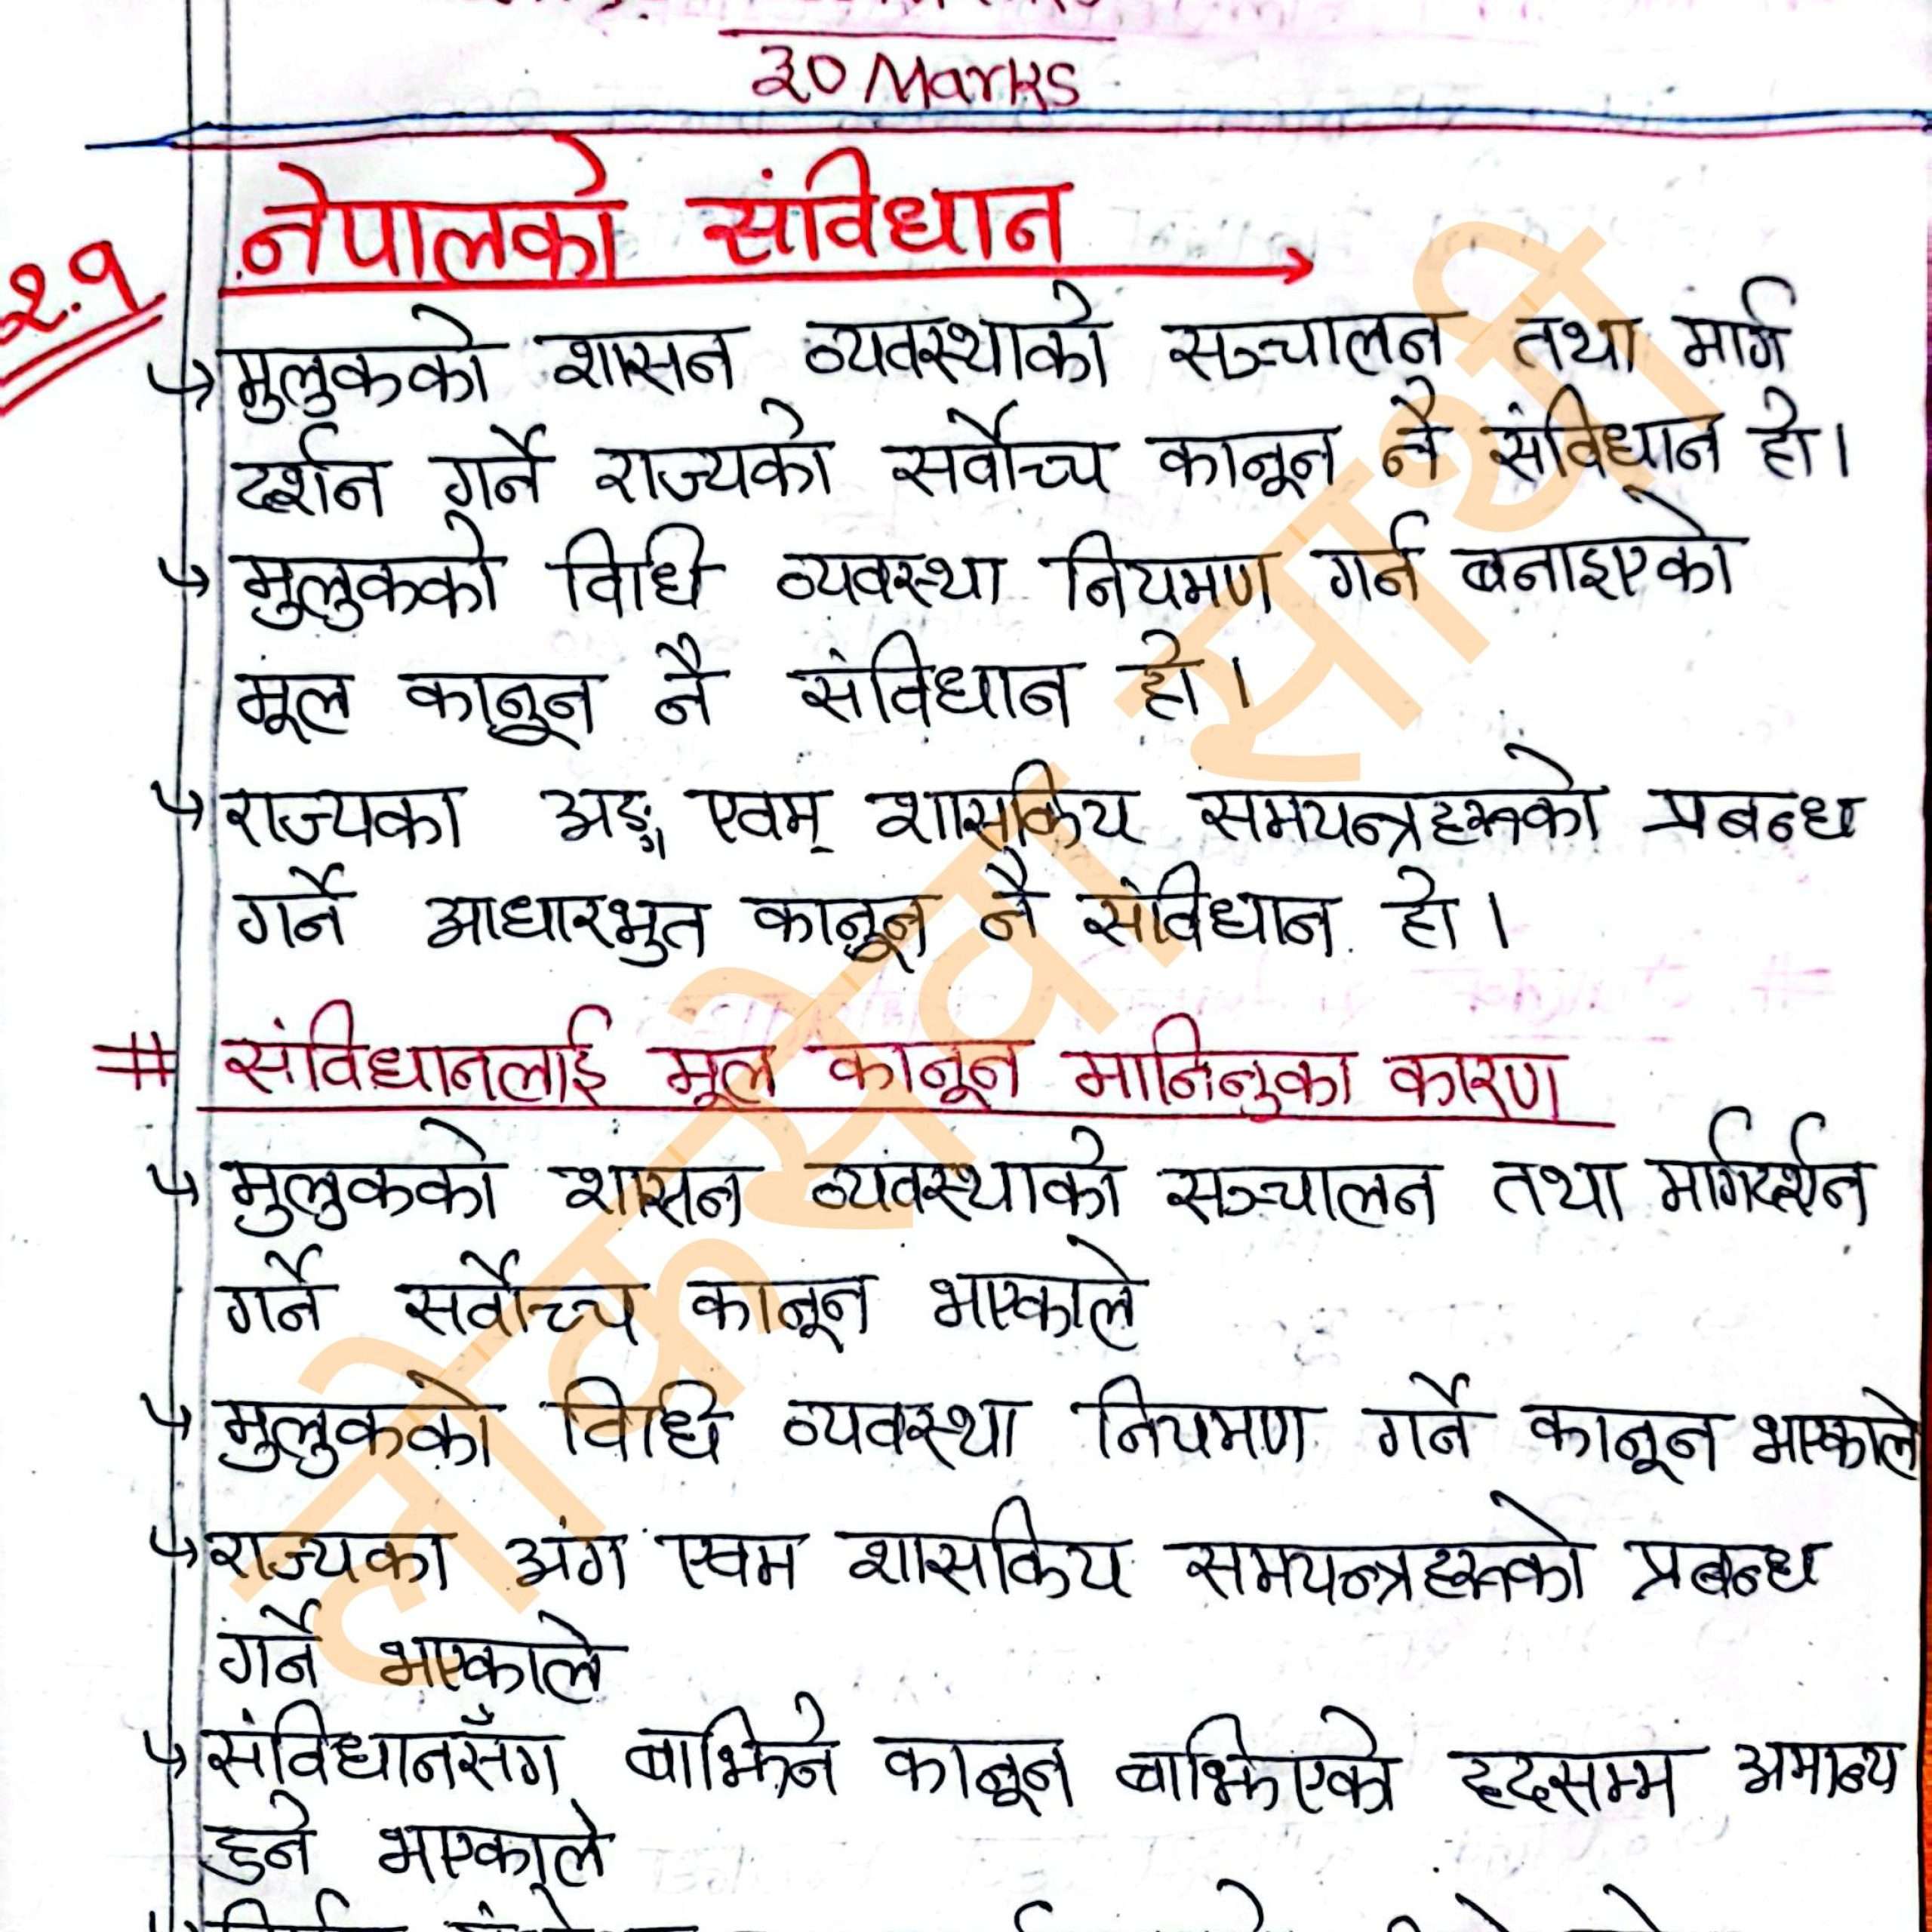 30 Marks
२.१ नेपालको संविधान
↳ मुलुकको शासन व्यवस्थाको सञ्चालन तथा मार्ग
दर्शन गर्ने राज्यको सर्वोच्च कानून नै संविधान हो।
↳ मुलुकको विधि व्यवस्था नियमण गर्न बनाइएको
मूल कानून नै संविधान हो।
↳ राज्यका अङ्ग एवम् शासकिय समयन्त्रहरूको प्रबन्ध
गर्ने आधारभुत कानून नै संविधान हो।
# संविधानलाई मूल कानून मानिनुका कारण
↳ मुलुकको शासन व्यवस्थाको सञ्चालन तथा मार्गदर्शन
गर्ने सर्वोच्च कानून भएकाले
↳ मुलुकको विधि व्यवस्था नियमण गर्ने कानून भएकाले
↳ राज्यका अंग एवम शासकिय समयन्त्रहरूको प्रबन्ध
गर्ने भएकाले
↳ संविधानसँग बाझिने कानून बाझिएको हदसम्म अमान्य
हुने भएकाले
लोक सेवा साथी